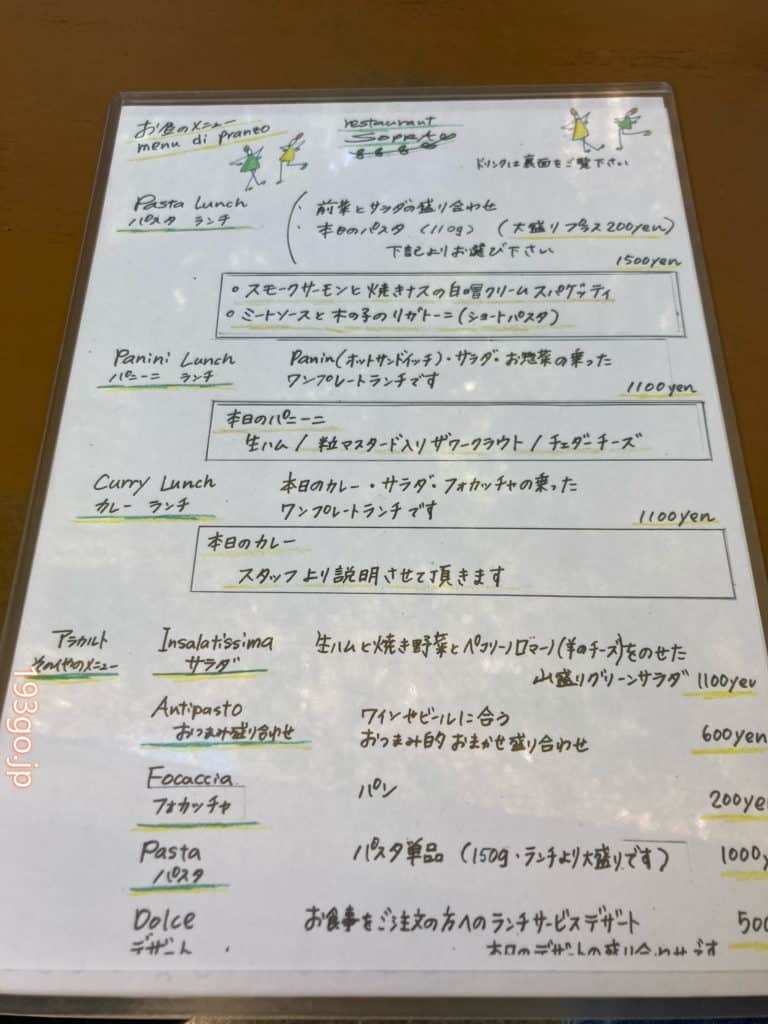 お昼のメニュー
menu di pranzo
restaurant
Sopra
ドリンクは裏面をご覧下さい
Pasta Lunch
パスタ ランチ
・前菜とサラダの盛り合わせ
・本日のパスタ (110g) (大盛りプラス200yen)
下記よりお選び下さい
1500yen
○スモークサーモンと焼きナスの白味噌クリームスパゲッティ
○ミートソースと木の子のリガトーニ(ショートパスタ)
Panini Lunch
パニーニ ランチ
Panin(ホットサンドイッチ)・サラダ・お惣菜の乗った
ワンプレートランチです
1100yen
本日のパニーニ
生ハム / 粒マスタード入りザワークラウト / チェダーチーズ
Curry Lunch
カレー ランチ
本日のカレー・サラダ・フォカッチャの乗った
ワンプレートランチです
1100yen
本日のカレー
スタッフより説明させて頂きます
アラカルト
その他のメニュー
Insalatissima
サラダ
生ハムと焼き野菜とペコリーノロマーノ(羊のチーズ)をのせた
山盛りグリーンサラダ 1100yen
Antipasto
おつまみ盛り合わせ
ワインやビールに合う
おつまみ的おまかせ盛り合わせ
600yen
Focaccia
フォカッチャ
パン
200ye
Pasta
パスタ
パスタ単品 (150g・ランチより大盛りです)
1000y
Dolce
デザート
お食事をご注文の方へのランチサービスデザート
500
本日のデザートの盛り合わせです
193go.jp